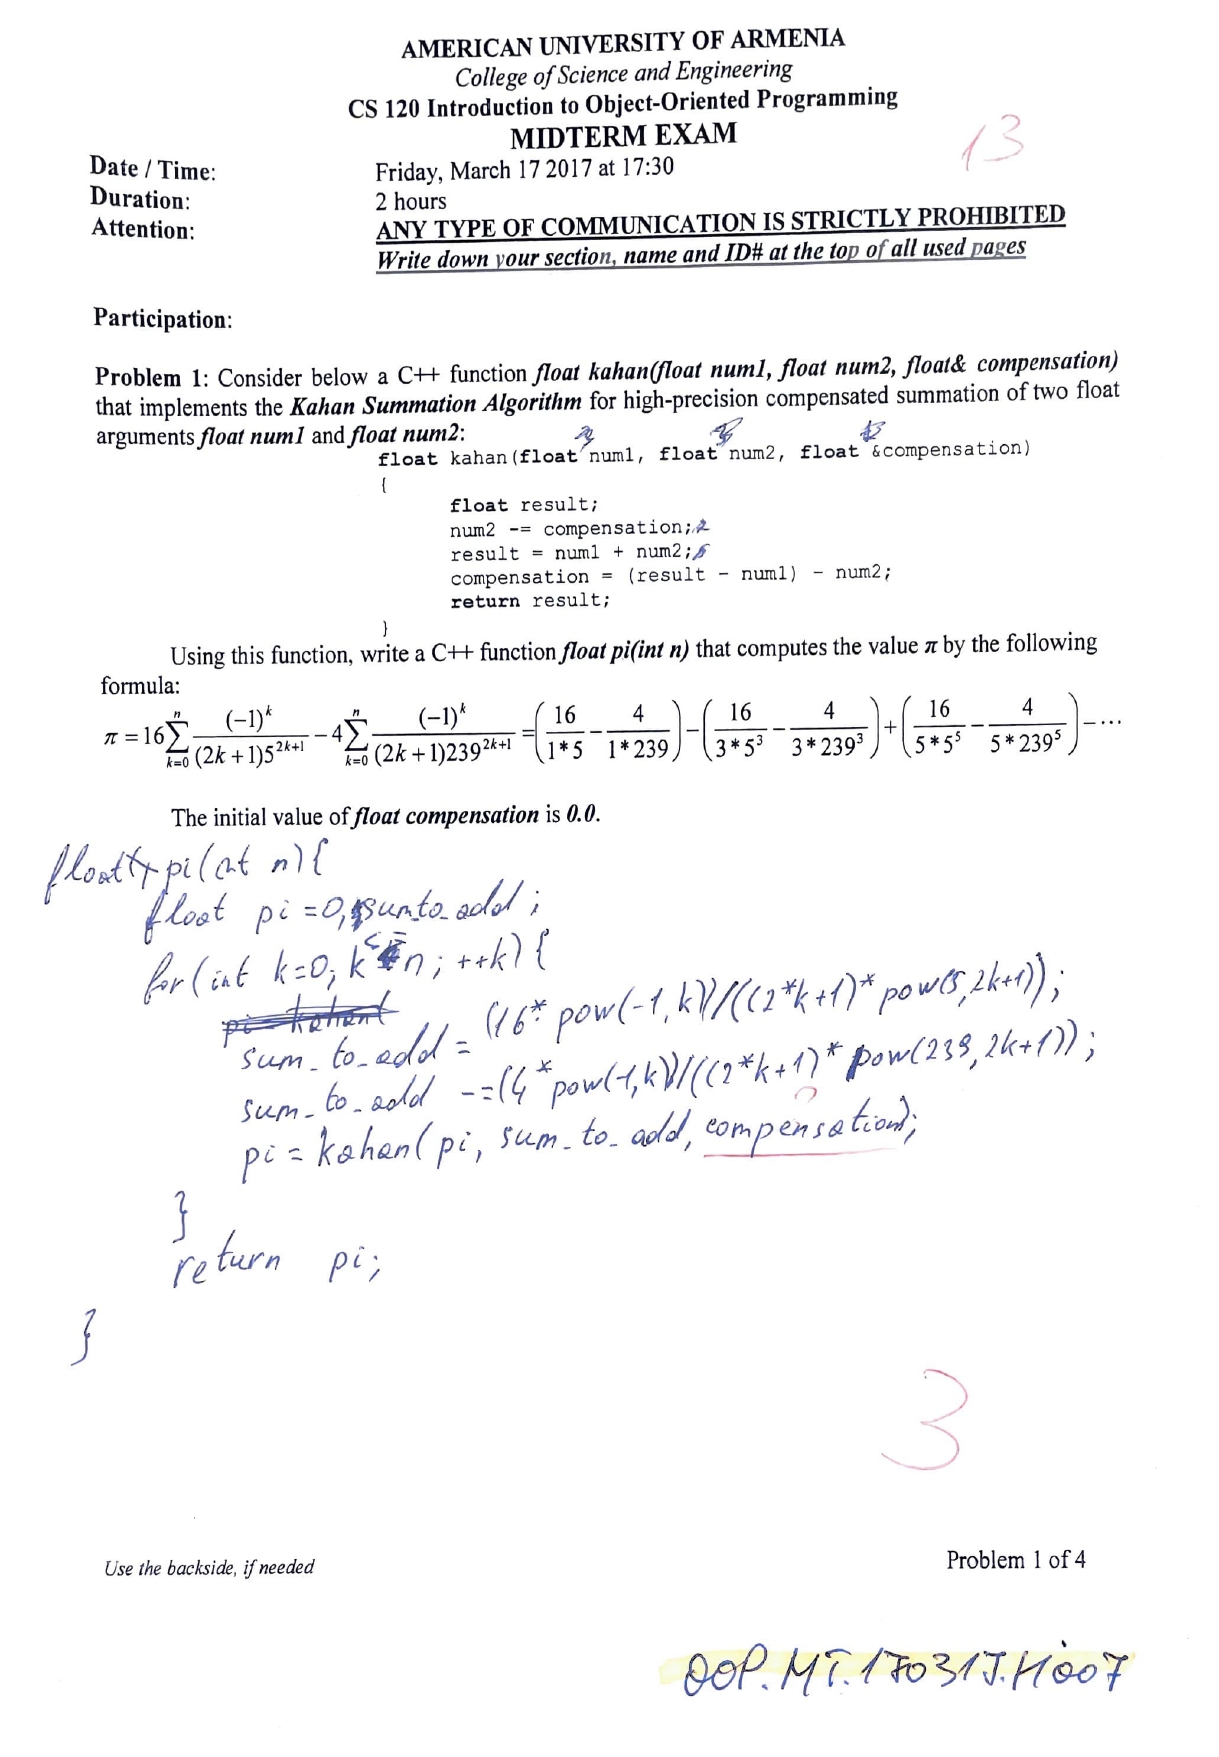 AMERICAN UNIVERSITY OF ARMENIA
College of Science and Engineering
CS 120 Introduction to Object-Oriented Programming
MIDTERM EXAM
13
Date / Time: Friday, March 17 2017 at 17:30
Duration: 2 hours
Attention: ANY TYPE OF COMMUNICATION IS STRICTLY PROHIBITED
Write down your section, name and ID# at the top of all used pages
Participation:
Problem 1: Consider below a C++ function float kahan(float num1, float num2, float& compensation)
that implements the Kahan Summation Algorithm for high-precision compensated summation of two float
arguments float num1 and float num2:
float kahan(float num1, float num2, float &compensation)
{
float result;
num2 -= compensation;
result = num1 + num2;
compensation = (result - num1) - num2;
return result;
}
Using this function, write a C++ function float pi(int n) that computes the value π by the following
formula:
π = 16 ∑_{k=0}^{n} (-1)^k / ((2k+1)5^{2k+1}) - 4 ∑_{k=0}^{n} (-1)^k / ((2k+1)239^{2k+1}) = (16/(1*5) - 4/(1*239)) - (16/(3*5^3) - 4/(3*239^3)) + (16/(5*5^5) - 4/(5*239^5)) - ...
The initial value of float compensation is 0.0.
float pi(int n){
float pi = 0, sum_to_add;
for(int k=0; k <= n; ++k){
sum_to_add = (16* pow(-1, k))/((2*k+1)* pow(5, 2k+1));
sum_to_add -= (4*pow(-1,k))/((2*k+1)* pow(239, 2k+1));
pi = kahan(pi, sum_to_add, compensation);
}
return pi;
}
3
Use the backside, if needed
Problem 1 of 4
OOP.MT.170317.M007